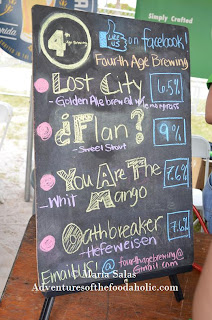 Simply Crafted
4th Age Brewing
LIKE US on facebook!
Fourth Age Brewing
Lost City 6.5%
- Golden Ale brewed
¿Flan? 9%
- Sweet Stout
You Are The Mango 7.6%
- Whit
Oathbreaker 7.6%
- Hefeweisen
Email us! @ fourthagebrewing@
Gmail.com
Maria Salas
Adventuresofthefoodaholic.com